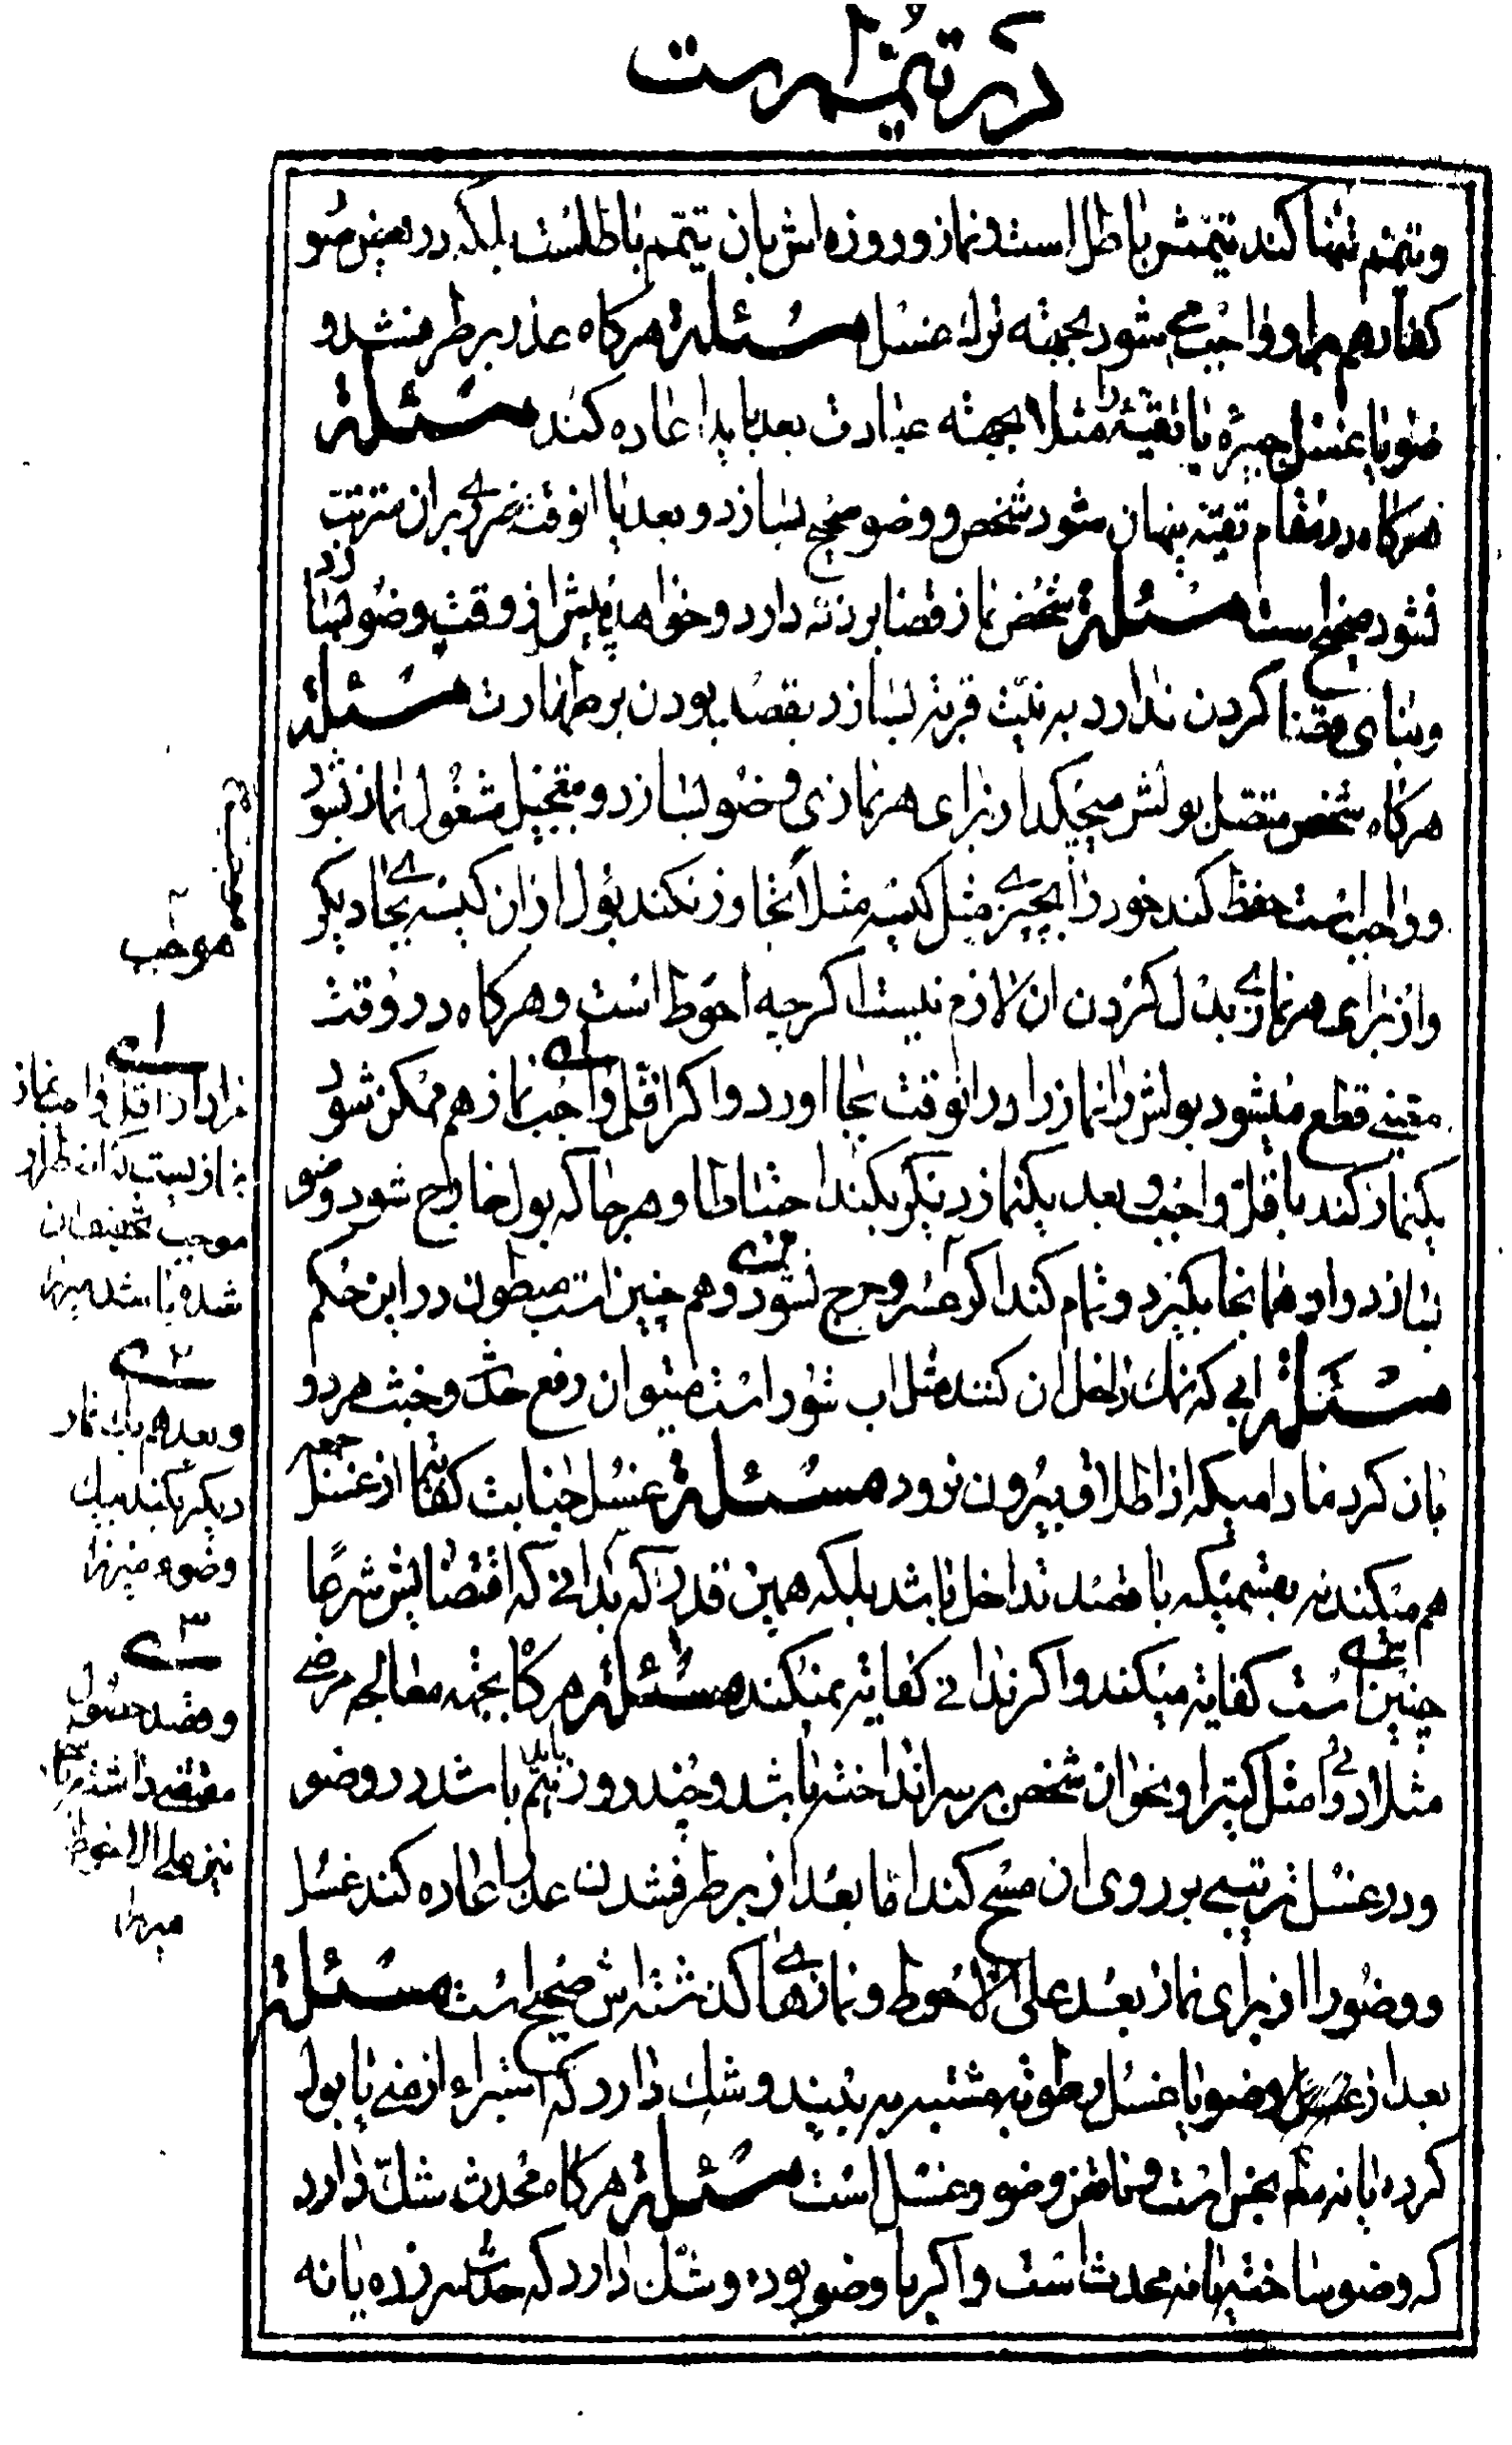 در تیمم است
و تیمم تنها کند تیممش باطل است و نماز و روزه اش بان تیمم باطلست بلکه در همین صو
کفاره هم بر او واجب می شود بجهته ترک غسل مسئلة هرکاه عذر برطرفشد و
ضو یا غسل جبیره یا تقیّة را مثلا بجهته عبادت بعد باید اعاده کند مسئلة
هرکاه در مقام تقیّه پنهان شود شخص و وضو صحیح بسازد و بعد یا انوقت ضرری بران مترتب
نشود صحیح است مسئلة شخص نماز قضا بر ذمّه دارد و خواهد پیش از وقت وضو بسازد
و بنای قضا کردن ندارد به نیّت قربة بسازد بقصد بودن بر طهارت مسئلة
هرکاه شخص متصل بولش میچکد از برای هر نمازی وضو بسازد و بتعجیل مشغول نماز شود
و واجب است حفظ کند خود را بچیزی مثل کیسه مثلا تجاوز نکند بول از ان کیسه بجای دیکر
و از برای هر نمازی بدل کردن ان لازم نیست اکرچه احوط است و هرکاه در وقت
معینی قطع میشود بولش را نماز را در انوقت بجا اورد و اکر اقل واجب نماز هم ممکن شود
یکنماز کند باقل واجب و بعد یکنماز دیکر بکند احتیاطا و هر جا که بول خارج شود وضو
بسازد و از همانجا بکیرد و تمام کند اکر عسر و حرج نشود و هم چنین است مبطون در این حکم
مسئلة ابی که نمک داخل ان کنند مثل اب شور است میتوان رفع حدث و خبث هر دو
بان کرد مادامیکه از اطلاق بیرون نرود مسئلة غسل جنابت کفایة از غسل جمعه
هم میکند نه بقسمیکه با قصد تداخل باشد بلکه همین قدر که بدانی که اقتضایش شرعًا
چنین است کفایة میکند و اکر ندانی کفایة نمیکند مسئلة هرکاه بجهته معالجه مرضی
مثلا دوائی مثل کتیرا و نحو ان شخص بر سر انداخته باشد و چند روز باید باشد در وضو
و در غسل ترتیبی بر روی ان مسح کند امّا بعد از برطرفشدن عذر اعاده کند غسل
و وضو را از برای نماز بعد علی الاحوط و نمازهای کذشته اش صحیح است مسئلة
بعد از وضو یا غسل رطوبة مشتبهه به بیند و شک دارد که استبراء از منی یا بول
کرده یا نه نجس است و ناقض وضو و غسل است مسئلة هرکاه محدث شکّ دارد
که وضو ساخته یا نه محدث است و اکر با وضو بوده و شکّ دارد که حدث سر زده یا نه
موجب
مراد از اقل واجب نماز
موجب تخفیف ان
شده باشد میرزا
و بعد هم یک نماز
دیکر بکند بیک
وضوء میرزا
و قصد حصول
نیز علی الاحوط
میرزا